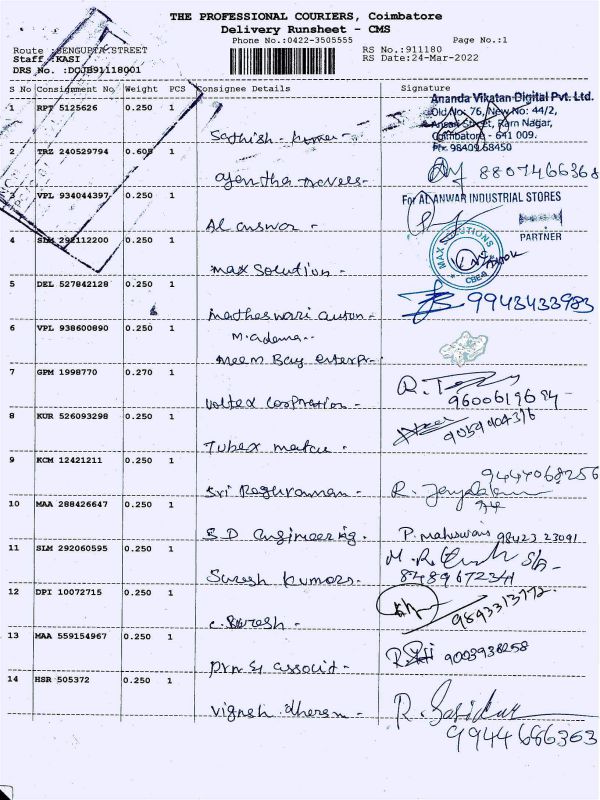 THE PROFESSIONAL COURIERS, Coimbatore
Delivery Runsheet - CMS
Phone No.:0422-3505555
Page No.:1
Route :SENGUPTA STREET
Staff :KASI
DRS No. :DCJB91118001
RS No.:911180
RS Date:24-Mar-2022
S No Consignment No Weight PCS Consignee Details Signature
1 RPT 5125626 0.250 1
Sathish - kumar -
Ananda Vikatan Digital Pvt. Ltd.
Old No: 76, New No: 44/2,
Ansari Street, Ram Nagar,
Coimbatore - 641 009.
Ph: 98409 68450
2 TRZ 240529794 0.605 1
8807466368
3 VPL 934044397 0.250 1
Al answar -
For AL ANWAR INDUSTRIAL STORES
PARTNER
4 SLM 292112200 0.250 1
max Solution -
MAX SOLUTIONS
CBE-9
5 DEL 527842128 0.250 1
Matheswari auton -
9943433983
6 VPL 938600890 0.250 1
meem Bay enterpr -
7 GPM 1998770 0.270 1
Voltex Corpration -
9600619694
8 KUR 526093298 0.250 1
Tubex
9 KCM 12421211 0.250 1
Sri
9444068256
10 MAA 288426647 0.250 1
S D engineering.
98423 23091
11 SLM 292060595 0.250 1
Suresh kumar.
8489672341
12 DPI 10072715 0.250 1
9843313772.
13 MAA 559154967 0.250 1
9003938258
14 HSR 505372 0.250 1
Vignesh dharan -
9944686363